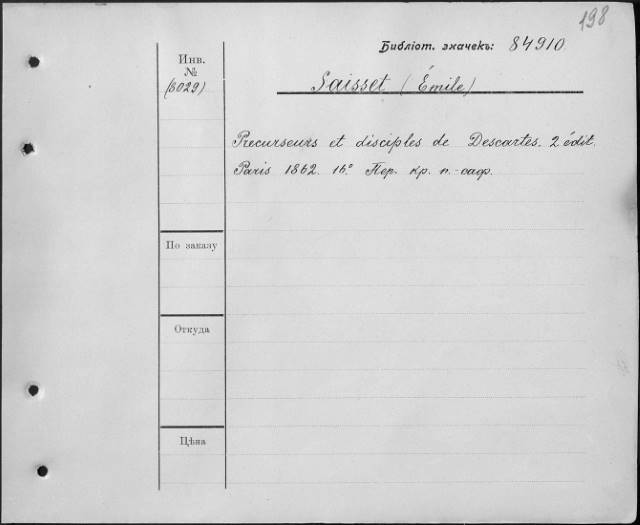 198
Библіот. значекъ: 84910
Инв.
№
(8029)
Saisset (Émile)
Precurseurs et disciples de Descartes. 2 édit.
Paris 1862. 16° Пер. кр. п.-сафр.
По заказу
Откуда
Цѣна